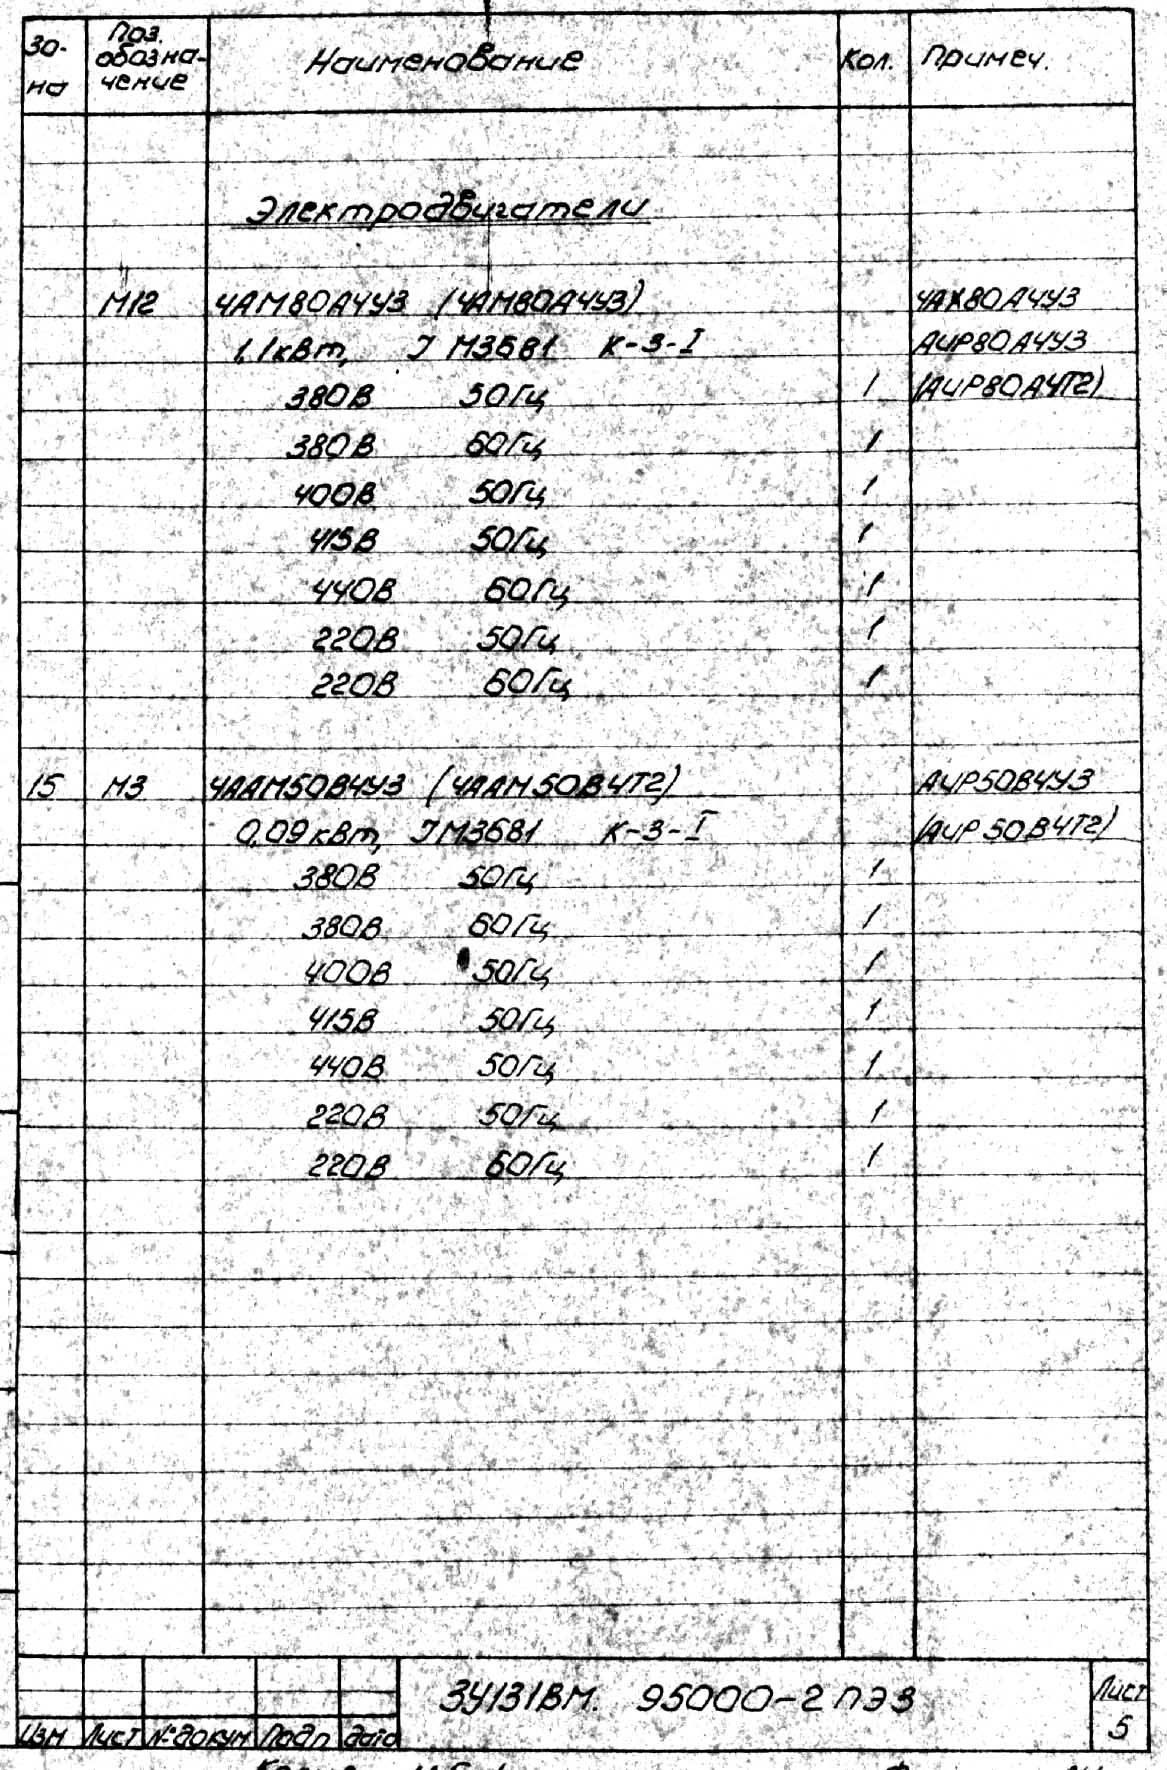 Зо- Поз. обозна- Наименование Кол. Примеч.
на чение
Электродвигатели
М12 4АМ80А4У3 (4АМ80А4У3) 4АХ80А4У3
1,1кВт, JМ3681 К-3-I АИР80А4У3
380В 50Гц 1 (АИР80А4Т2)
380В 60Гц 1
400В 50Гц 1
415В 50Гц 1
440В 60Гц 1
220В 50Гц 1
220В 60Гц 1
15 М3 4ААМ50В4У3 (4ААМ50В4Т2) АИР50В4У3
0,09кВт, JМ3681 К-3-I (АИР50В4Т2)
380В 50Гц 1
380В 60Гц 1
400В 50Гц 1
415В 50Гц 1
440В 50Гц 1
220В 50Гц 1
220В 60Гц 1
3У131ВМ. 95000-2 ПЭ3 Лист
Изм Лист №докум Подп дата 5